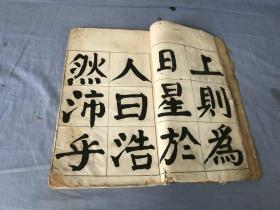 上則為
日星於
人曰浩
然沛乎